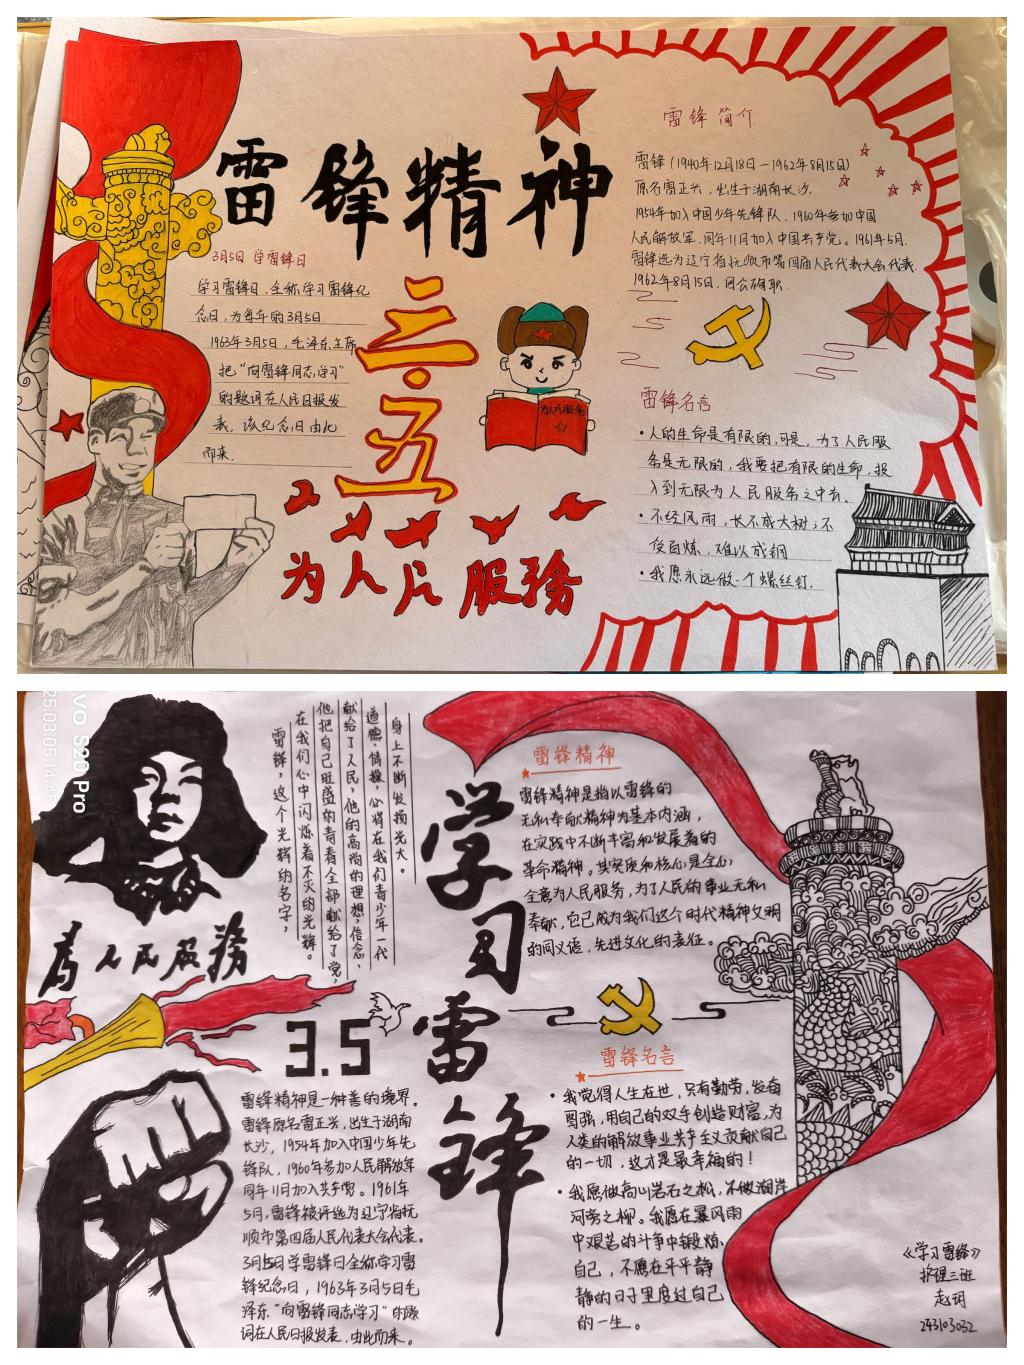 雷锋精神
3月5日 学雷锋日
学习雷锋日，全称学习雷锋纪
念日，为每年的3月5日.
1963年3月5日，毛泽东主席
把“向雷锋同志学习”
的题词在人民日报发
表，该纪念日由此
而来.
三·五
为人民服务
为人民服务
雷锋简介
雷锋（1940年12月18日－1962年8月15日）
原名雷正兴，出生于湖南长沙.
1954年加入中国少年先锋队，1960年参加中国
人民解放军.同年11月加入中国共产党。1961年5月.
雷锋选为辽宁省抚顺市第四届人民代表大会代表.
1962年8月15日，因公殉职.
雷锋名言
·人的生命是有限的,可是，为了人民服
务是无限的，我要把有限的生命，投
入到无限为人民服务之中去.
·不经风雨，长不成大树；不
受百炼，难以成钢
·我愿永远做一个螺丝钉.
25.03.05 14:45
vo S20 Pro
為人民服務
雷锋，这个光辉的名字，
在我们心中闪烁着不灭的光辉。
他把自己旺盛的青春全部献给了党，
献给了人民，他的高尚的理想，信念，
道德，情操，必将在我们青少年一代
身上不断发扬光大。
学习雷锋
3.5
雷锋精神是一种善的境界.
雷锋原名雷正兴，出生于湖南
长沙，1954年加入中国少年先
锋队，1960年参加人民解放军
同年11月加入共产党。1961年
5月，雷锋被评选为辽宁省抚
顺市第四届人民代表大会代表。
3月5日学雷锋日全称学习雷
锋纪念日，1963年3月5日毛
泽东“向雷锋同志学习”的题
词在人民日报发表，由此而来。
雷锋精神
雷锋精神是指以雷锋的
无私奉献精神为基本内涵，
在实践中不断丰富和发展着的
革命精神。其实质和核心是全心
全意为人民服务，为了人民的事业无私
奉献，它已成为我们这个时代精神文明
的同义语，先进文化的表征。
雷锋名言
·我觉得人生在世，只有勤劳，发奋
图强，用自己的双手创造财富，为
人类的解放事业共产主义贡献自己
的一切，这才是最幸福的！
·我愿做高山岩石之松，不做湖岸
河旁之柳。我愿在暴风雨
中艰苦的斗争中锻炼
自己，不愿在平平静
静的日子里度过自己
的一生。
《学习雷锋》
护理三班
赵玥
243103032